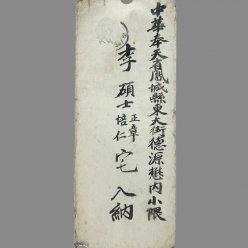 中華奉天省鳳城縣東大街德源懋内小隈
李碩士正章培仁宅入納